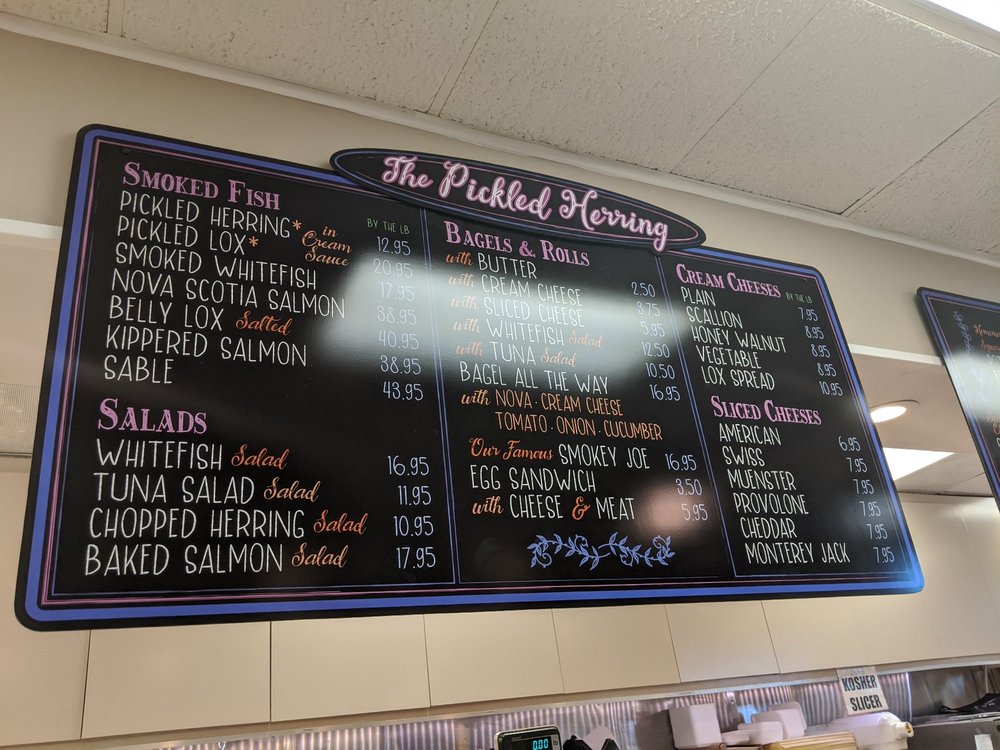 The Pickled Herring
SMOKED FISH
BY THE LB
PICKLED HERRING* in Cream Sauce 12.95
PICKLED LOX* 20.95
SMOKED WHITEFISH 17.95
NOVA SCOTIA SALMON 38.95
BELLY LOX Salted 40.95
KIPPERED SALMON 38.95
SABLE 43.95
SALADS
WHITEFISH Salad 16.95
TUNA SALAD Salad 11.95
CHOPPED HERRING Salad 10.95
BAKED SALMON Salad 17.95
BAGELS & ROLLS
with BUTTER 2.50
with CREAM CHEESE 3.75
with SLICED CHEESE 5.95
with WHITEFISH Salad 12.50
with TUNA Salad 10.50
BAGEL ALL THE WAY 16.95
with NOVA · CREAM CHEESE
TOMATO · ONION · CUCUMBER
Our Famous SMOKEY JOE 16.95
EGG SANDWICH 3.50
with CHEESE & MEAT 5.95
CREAM CHEESES BY THE LB
PLAIN 7.95
SCALLION 8.95
HONEY WALNUT 8.95
VEGETABLE 8.95
LOX SPREAD 10.95
SLICED CHEESES
AMERICAN 6.95
SWISS 7.95
MUENSTER 7.95
PROVOLONE 7.95
CHEDDAR 7.95
MONTEREY JACK 7.95
KOSHER
SLICER
0.00